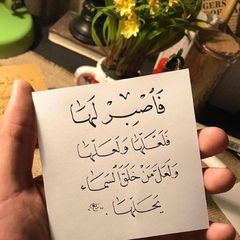 فَاصْبِرْ لَهَا
فَلَعَلَّهَا وَلَعَلَّهَا
وَلَعَلَّ مَنْ خَلَقَ السَّمَاءَ
يَحُلُّهَا.